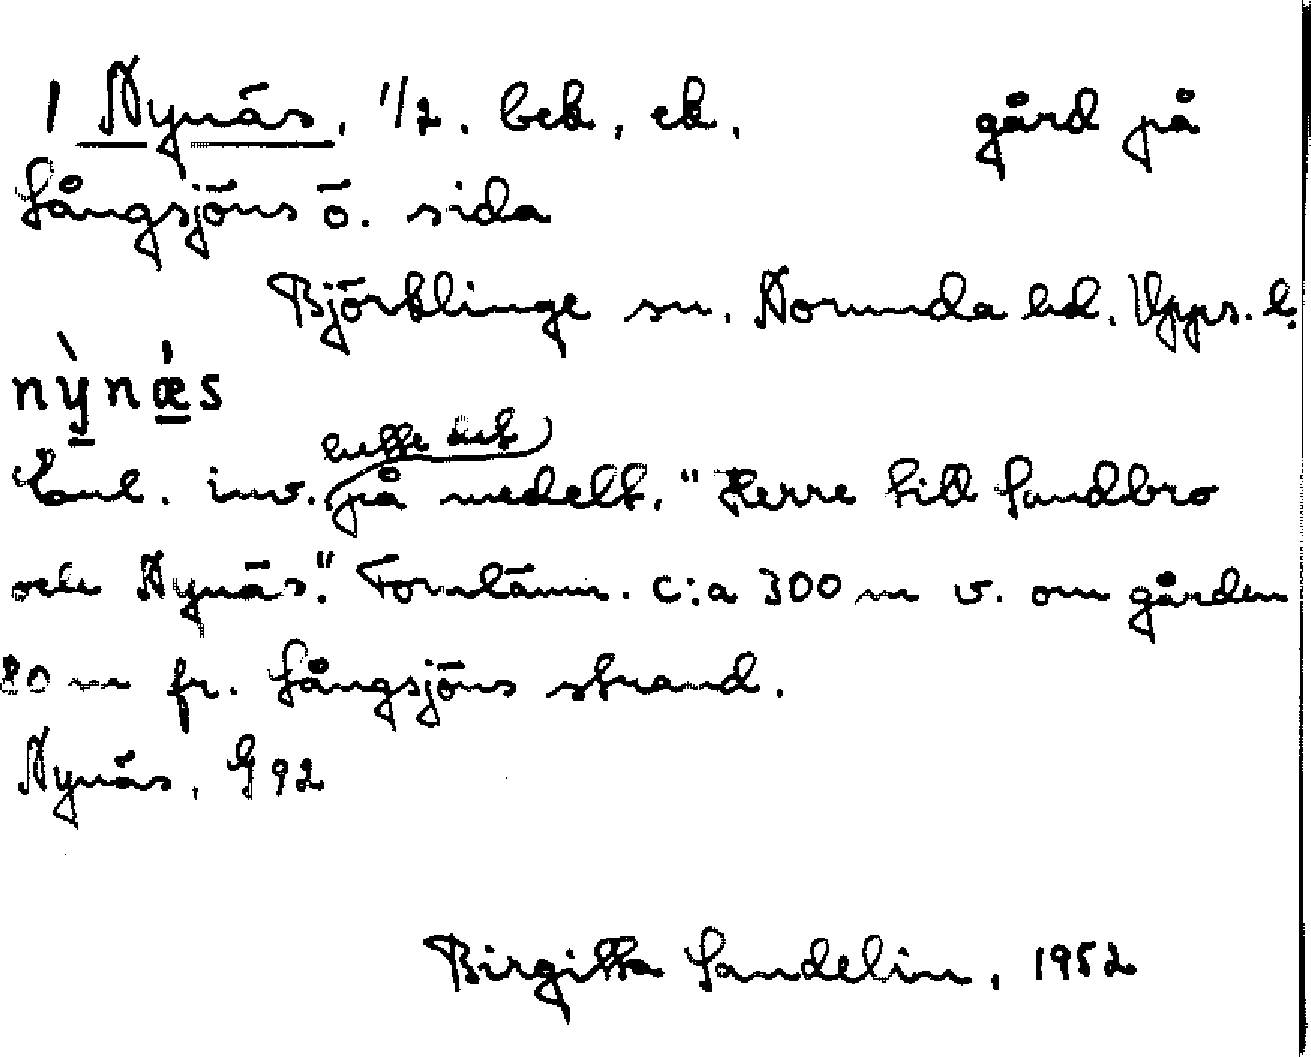 1 Nynäs, 1/2. bek, ek, gård på
Långsjöns ö. sida
Björklinge sn. Norunda hd. Upps. l.
nỳnǽs
Enl. inv. på medelt. "Herre till Sandbro
och Nynäs." Fornlämn. c:a 300 m v. om gården
20 m fr. Långsjöns strand.
Nynäs, G 92
Birgitta Sandelin, 1952